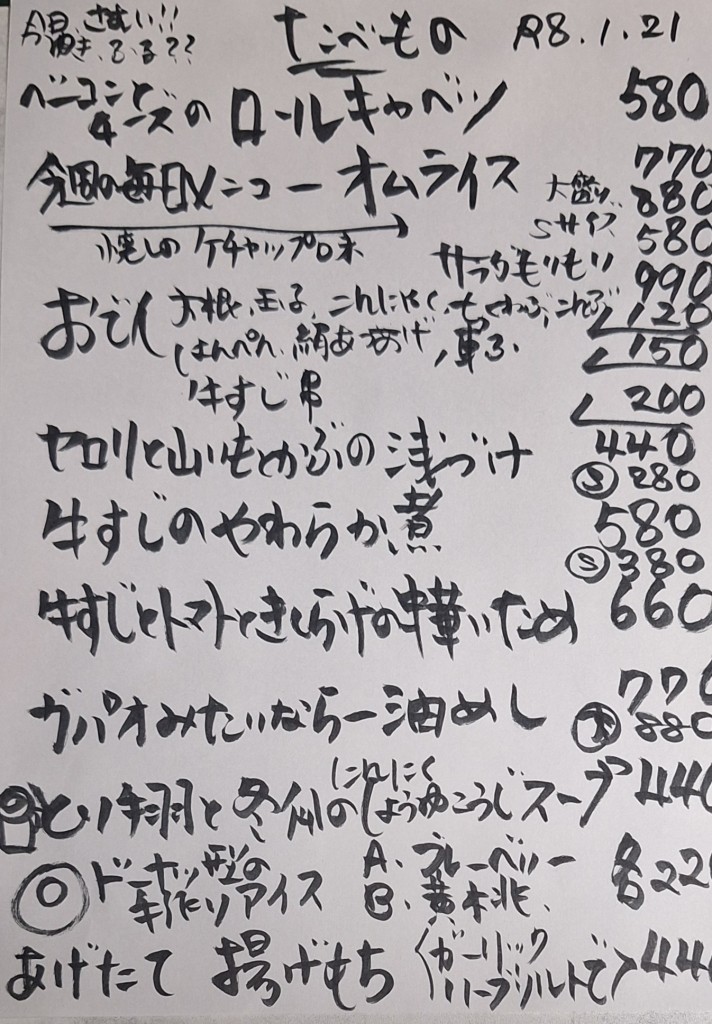 たべもの R8.1.21
ベーコンとチーズの ロールキャベツ 580
今週の毎日メニュー オムライス 770
大盛り 880
Sサイズ 580
懐しの ケチャップ
サラダもりもり 990
おでん 大根、玉子、こんにゃく、ちくわぶ、こんぶ 120
はんぺん、絹あつあげ、車ふ 150
牛すじ串 200
セロリと山いもとかぶの浅づけ 440
Ⓢ 280
牛すじのやわらか煮 580
Ⓢ 380
牛すじとトマトときくらげの中華いため 660
ガパオみたいならー油めし 770
880
とり手羽と冬 のにんにくしょうゆこうじスープ 440
ドーナッツ型の手作りアイス A. ブルーベリー 各220
B. 黄桃
あげたて 揚げもち (ガーリックハーブソルトで) 440